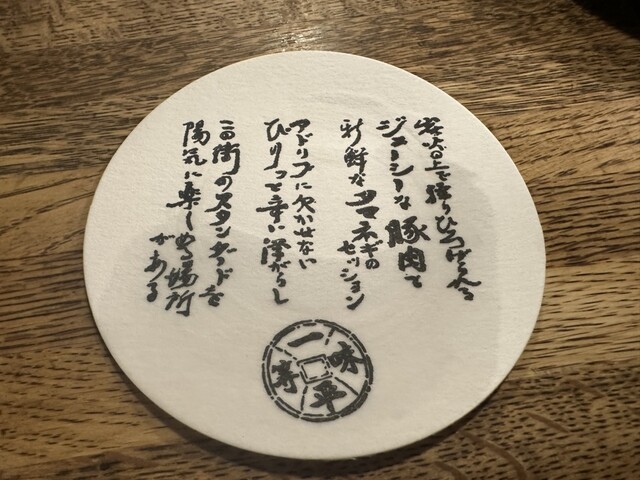 炭火の上で繰りひろげられる
ジューシーな豚肉と
新鮮なタマネギのセッション
アドリブに欠かせない
ぴりっと辛い洋がらし
この街のスタンダードを
陽気に楽しめる場所
がある
一味平等